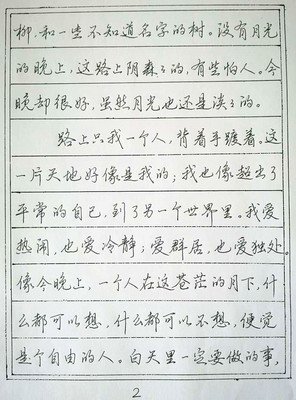 柳，和一些不知道名字的树。没有月光
的晚上，这路上阴森々的，有些怕人。今
晚却很好，虽然月光也还是淡々的。
路上只我一个人，背着手踱着。这
一片天地好像是我的；我也像超出了
平常的自己，到了另一个世界里。我爱
热闹，也爱冷静；爱群居，也爱独处。
像今晚上，一个人在这苍茫的月下，什
么都可以想，什么都可以不想，便觉
是个自由的人。白天里一定要做的事，
2